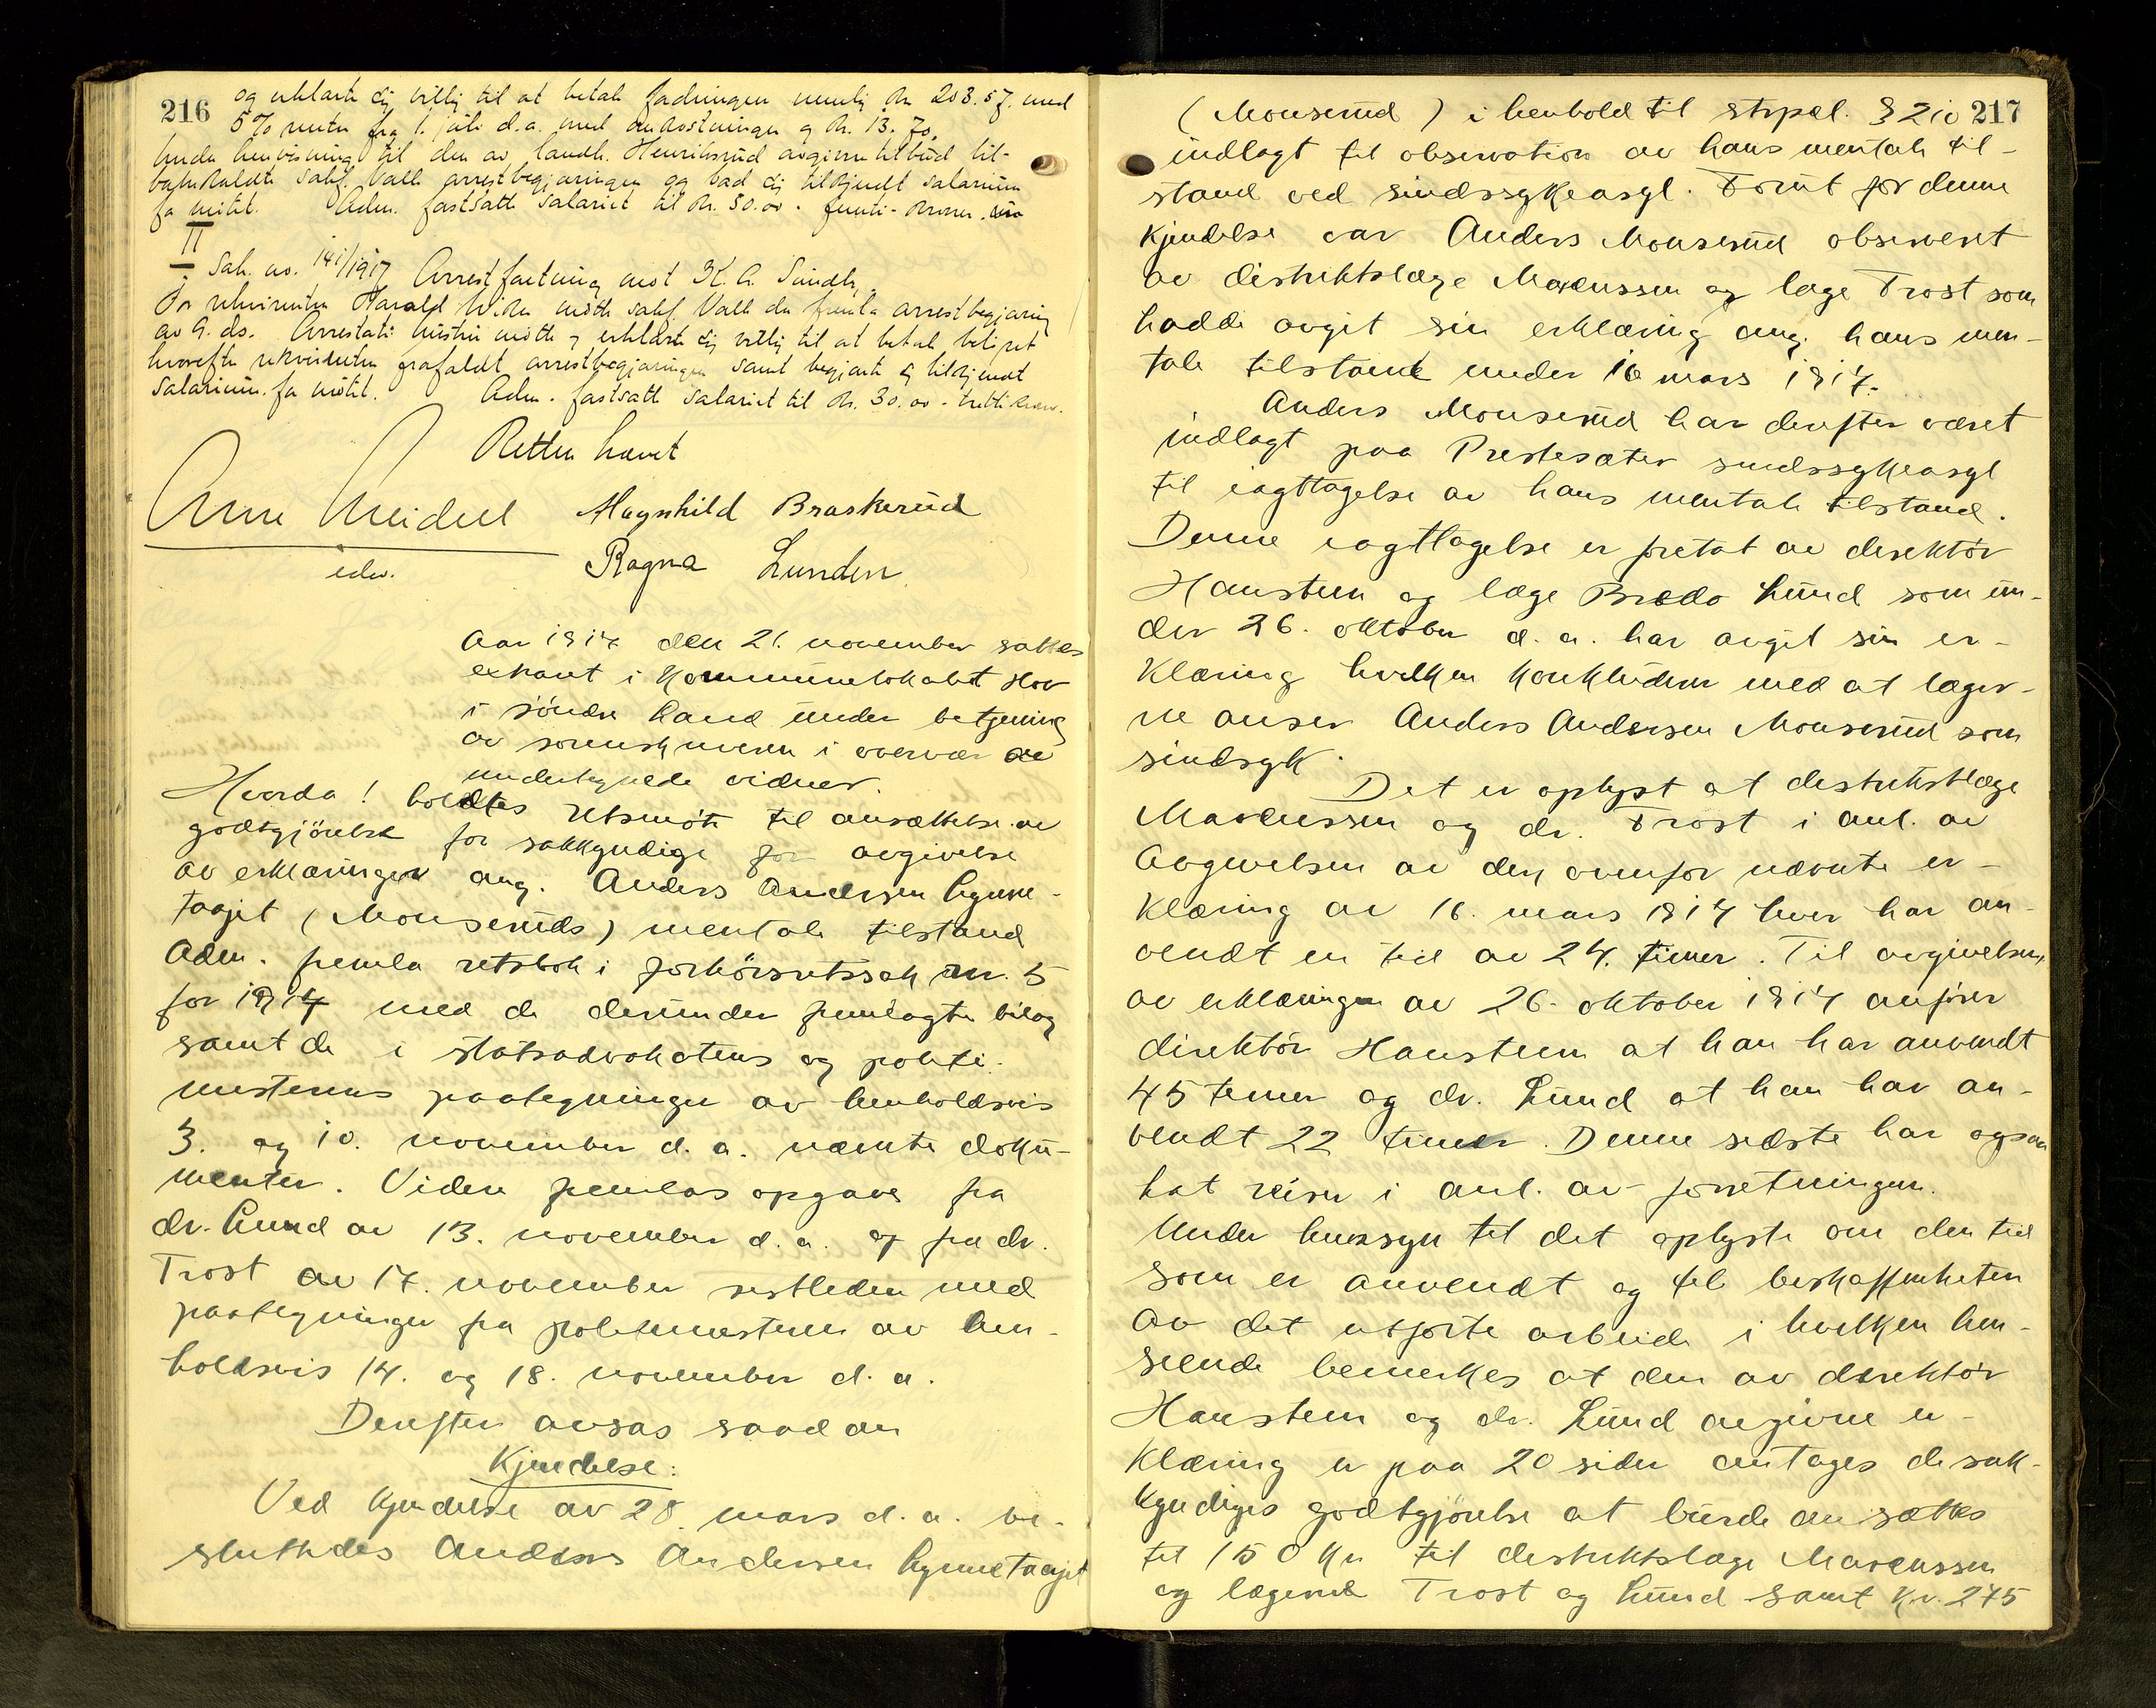 216
og erklærte sig villig til at betale fordringen nemlig kr 203.57. med
5% renter fra 1. juli d.a. med omkostninger og kr. 13.70.
Under henvisning til den av landh. Henriksrud avgivne tilbud til-
bakekaldte sakf. Valle arrestbegjæringen og bad sig tilkjendt salarium
for møtet. Adm. fastsatte salariet til kr. 50.00 - femti - kroner.
II
Sak. no. 141/1917 Arrestforretning mot K. A. Sundby.
For rekvirenten Harald Wiken møtte sakf. Valle der fremla arrestbegjæring
av 9. ds. Arrestati hustru møtte og erklærte sig villig til at betale beløpet
hvorefter rekvirenten frafaldt arrestbegjæringen samt begjærte sig tilkjendt
salarium for møtet. Adm. fastsatte salariet til kr. 30.00 - tretti kroner.
Retten hævet
Magnhild Braskerud
edv.
Ragna Lunden
Aar 1917 den 21. november sattes
extraret i Kommunelokalet Hov
i søndre Land under betjening
av sorenskriveren i overvær av
undertegnede vidner.
Hvorda! holdtes retsmøte til ansættelse av
godtgjørelse for sakkyndige for avgivelse
av erklæringer ang. Anders Andersen Lynne-
taajet (Monseruds) mentale tilstand
Adm. fremla retsbok i forhørsretssak nr. 5
for 1917 med de derunder fremlagte bilag
samt de i statsadvokatens og politi-
mesterens paategninger av henholdsvis
3. og 10. november d. a. nævnte doku-
menter. Videre fremlas opgave fra
dr. Lund av 13. november d. a. og fra dr.
Trost av 17. november sistleden med
paategninger fra politimesteren av hen-
holdsvis 14. og 18. november d. a.
Derefter avsas saadan
Kjendelse:
Ved kjendelse av 28. mars d. a. be-
sluttedes Anders Andersen Lynnetaajet
217
(Monserud) i henhold til strpl. § 210
indlagt til observation av hans mentale til-
stand ved sindssykeasyl. Forut for denne
kjendelse var Anders Monserud observeret
av distriktslæge Marcussen og læge Trost som
hadde avgit sin erklæring ang. hans men-
tale tilstand under 16 mars 1917.
Anders Monserud har derefter været
indlagt paa Prestesæter sindssykeasyl
til iagttagelse av hans mentale tilstand.
Denne iagttagelse er foretat av direktør
Hausteen og læge Bredo Lund som un-
der 26. oktober d. a. har avgit sin er-
klæring hvilken konkluderer med at læger-
ne anser Anders Andersen Monserud som
sindsyk.
Det er oplyst at distriktslæge
Marcussen og dr. Trost i anl. av
avgivelsen av den ovenfor nævnte er-
klæring av 16. mars 1917 hver har an-
vendt en tid av 24. timer. Til avgivelsen
av erklæringen av 26. oktober 1917 anfører
direktør Hausteen at han har anvendt
45 timer og dr. Lund at han har an-
vendt 22 timer. Denne sidste har ogsaa
hat reiser i anl. av forretningen.
Under hensyn til det oplyste om den tid
som er anvendt og til beskaffenheten
av det utførte arbeide i hvilken hen-
seende bemerkes at den av direktør
Hausteen og dr. Lund avgivne er-
klæring er paa 20 sider antages de sak-
kyndiges godtgjørelse at burde ansættes
til 150 kr til distriktslæge Marcussen
og lægerne Trost og Lund samt Kr. 275